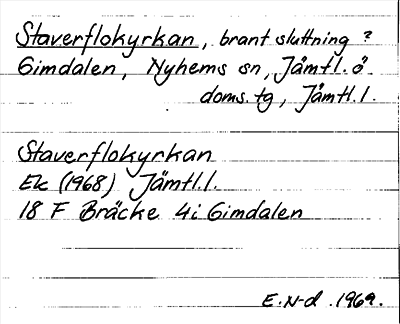 Staverflokyrkan, brant sluttning?
Gimdalen, Nyhems sn, Jämtl. ö
doms. tg, Jämtl. l.
Staverflokyrkan
Ek (1968) Jämtl. l.
18 F Bräcke 4i Gimdalen
E. N-d. 1969.